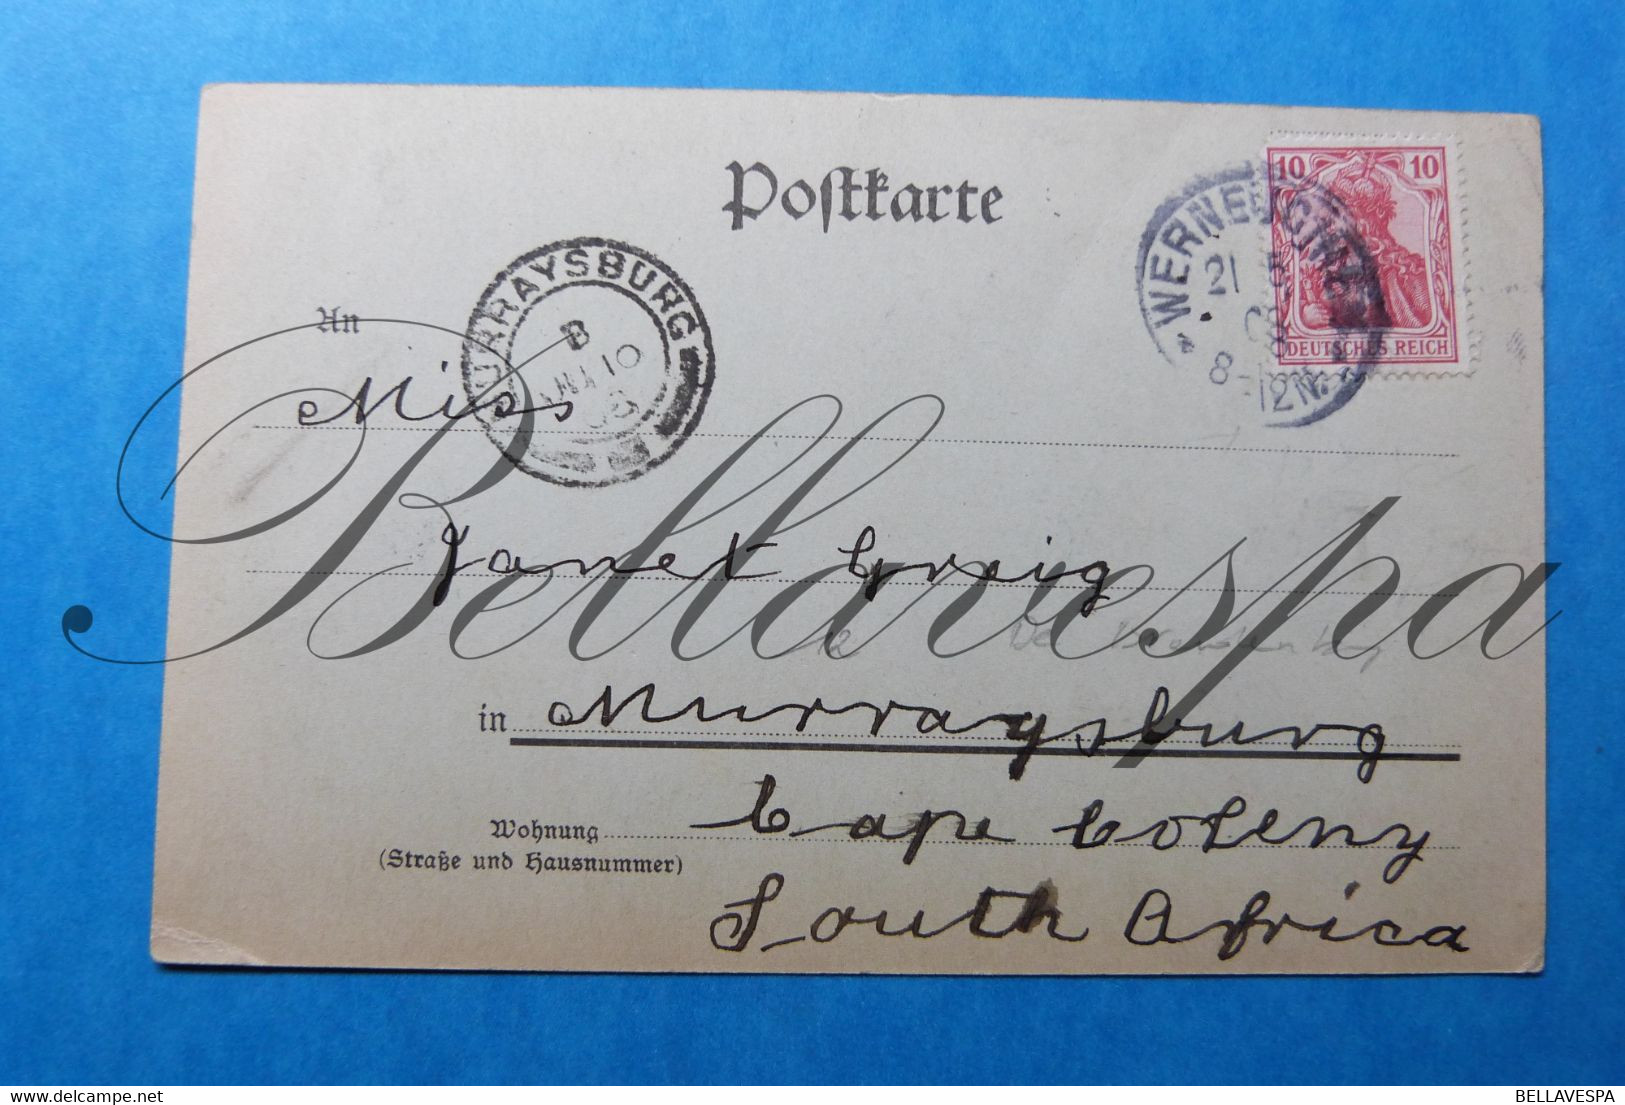 Postkarte
10 10
DEUTSCHES REICH
WERNEUCHEN
21 5
8-12N.
MURRAYSBURG
B
10
An
Miss
Janet Greig
in Murraysburg
Wohnung
(Straße und Hausnummer)
Cape Coleny
South Africa
Bellavespa
delcampe.net
BELLAVESPA